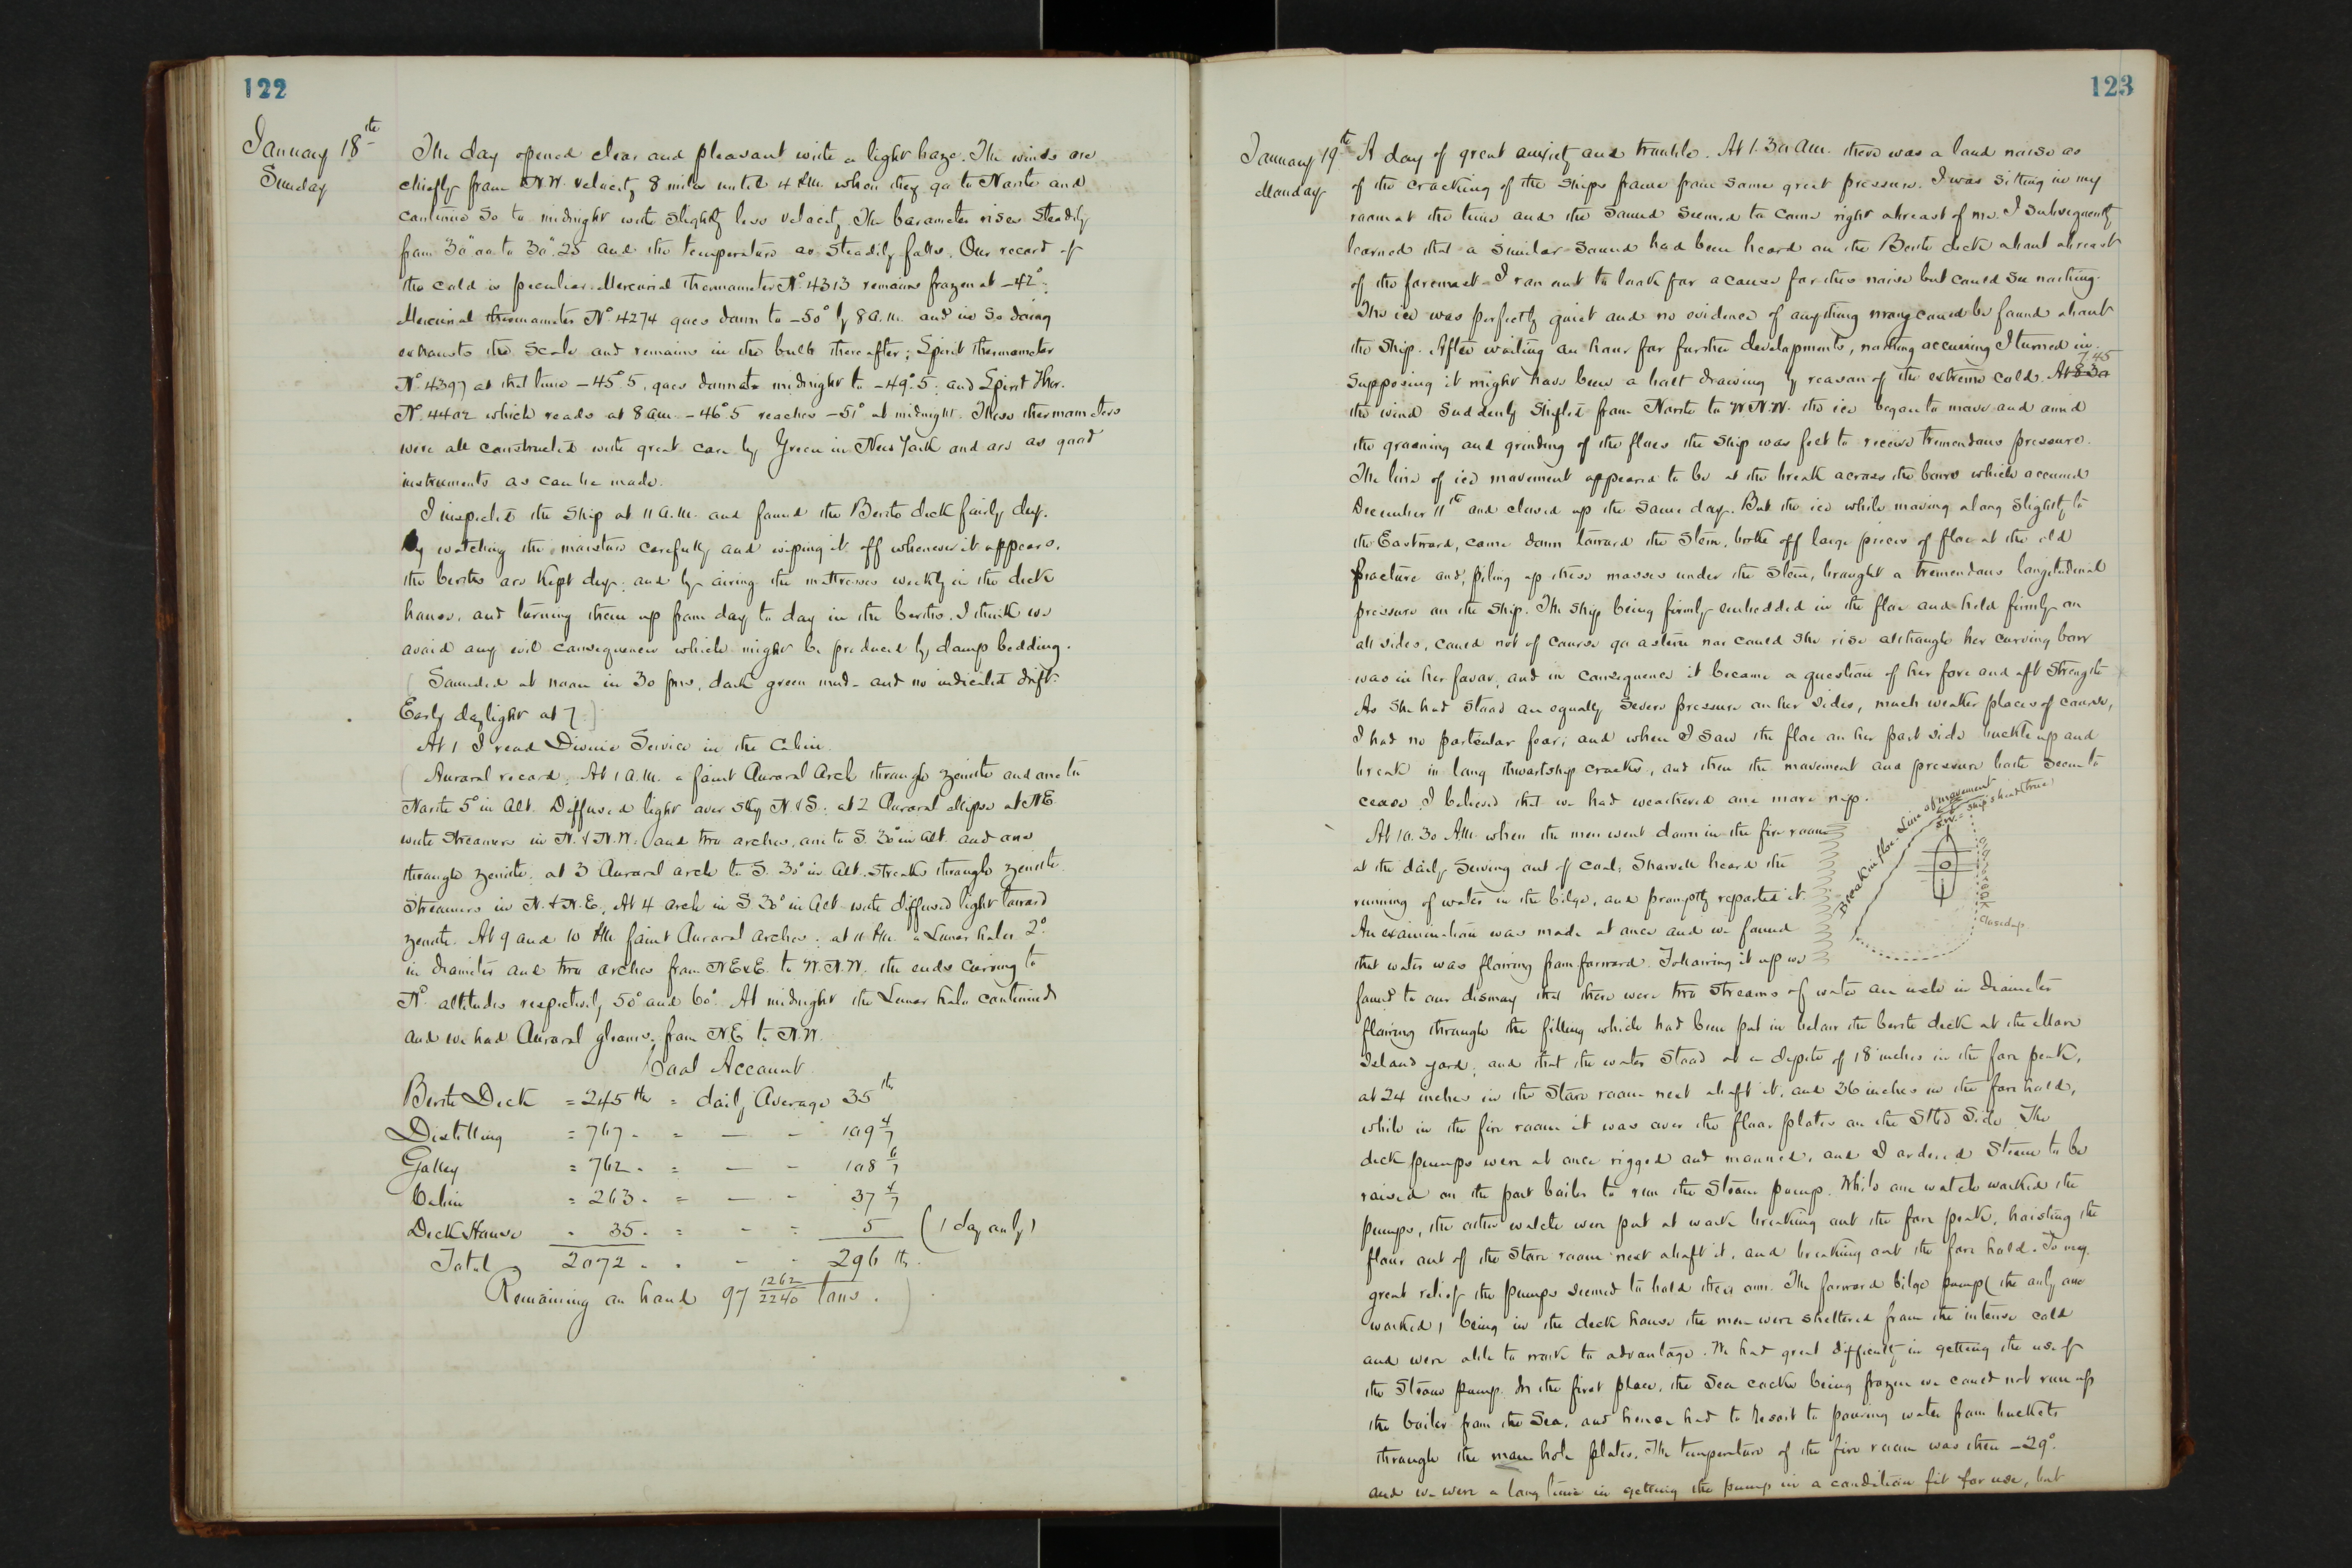 122
January 18th
Sunday
The day opened clear and pleasant with a light haze. The winds are
chiefly from N.W. velocity 8 miles until 4 P.M. when they go to North and
continue so to midnight with slightly less velocity. The barometer rises steadily
from 30".00 to 30".25 and the temperature as steadily falls. Our record of
the cold is peculiar. Mercurial thermometer No. 4313 remains frozen at -42°:
Mercurial thermometer No. 4274 goes down to -50° by 8 a.m. and in so doing
exhausts the scale and remains in the bulb thereafter; Spirit thermometer
No. 4397 at that time -45°.5, goes down to midnight to -49°.5: and Spirit Ther.
No. 4402 which reads at 8 a.m. -46°.5 reaches -51° at midnight. These thermometers
were all constructed with great care by Green in New York and are as good
instruments as can be made.
I inspected the ship at 11 a.m. and found the Berth deck fairly dry.
By watching the moisture carefully and wiping it off whenever it appears,
the berths are kept dry: and by airing the mattresses weekly in the deck
house, and turning them up from day to day in the berths, I think we
avoid any evil consequences which might be produced by damp bedding.
( Sounded at noon in 30 fms, dark green mud - and no indicated drift.
Early daylight at 7.)
At 1 I read Divine Service in the Cabin.
( Auroral record. At 1 A.M. a faint Auroral Arch through zenith and one to
North 5° in Alt. Diffused light over sky N & S: at 2 Auroral ellipse at NE
with streamers in N. & N.W. and two arches, one to S. 30° in alt. and one
through zenith: at 3 Auroral arch to S. 30° in Alt. streaks through zenith
streamers in N. & N.E. At 4 arch in S. 30° in Alt with diffused light toward
zenith. At 9 and 10 P.M. faint Auroral arches: at 11 P.M. a Lunar halo 2°
in diameter and two arches from NExE. to W.N.W. the ends curving to
No. altitudes respectively 50° and 60°. At midnight the Lunar halo continued
and we had Auroral gleams from NE to N.W.
Coal Account
Berth Deck = 245 lbs = daily Average 35 lb
Distilling = 767 - = — - 109 4/7
Galley = 762 - = — - 108 6/7
Cabin = 263 - = — - 37 4/7
Deck House - 35 - = - = 5 (1 day only)
Total 2072 - - - - 296 lb.
Remaining on hand 97 1262/2240 tons. )
123
January 19th
Monday
A day of great anxiety and trouble. At 1.30 a.m. there was a loud noise as
of the cracking of the ships frame from some great pressure. I was sitting in my
room at the time and the sound seemed to come right abreast of me. I subsequently
learned that a similar sound had been heard on the Berth deck about abreast
of the foremast - I ran out to look for a cause for this noise but could see nothing.
The ice was perfectly quiet and no evidence of anything wrong could be found about
the ship. After waiting an hour for further developments, nothing occurring I turned in
7.45
supposing it might have been a bolt drawing by reason of the extreme cold. At 8.30
the wind suddenly shifted from North to W.N.W. the ice began to move and amid
the groaning and grinding of the floes the ship was felt to receive tremendous pressure.
The line of ice movement appeared to be at the break across the bows which occurred
December 11th and closed up the same day. But the ice while moving along slightly to
the Eastward, came down toward the stem, broke off large pieces of floe at the old
fracture and, piling up these masses under the stem, brought a tremendous longitudinal
pressure on the ship. The ship being firmly embedded in the floe and held firmly on
all sides, could not of course go astern nor could she rise although her curving bow
was in her favor, and in consequence it became a question of her fore and aft strength
As she had stood an equally severe pressure on her sides, much weaker places of course,
I had no particular fear; and when I saw the floe on her port side buckle up and
break in long thwartship cracks, and then the movement and pressure both seem to
cease, I believed that we had weathered one more nip.
Break in floe. Line of movement
S.W. = Ship's head (true)
Old break
Closed up
At 10.30 A.M. when the men went down in the fire room
at the daily serving out of coal, Sharvell heard the
running of water in the bilge, and promptly reported it.
An examination was made at once and we found
that water was flowing from forward. Following it up we
found to our dismay that there were two streams of water an inch in diameter
flowing through the filling which had been put in below the berth deck at the Mare
Island yard, and that the water stood at a depth of 18 inches in the fore peak,
at 24 inches in the Store room next abaft it, and 36 inches in the fore hold,
while in the fire room it was over the floor plates on the Stbd side. The
deck pumps were at once rigged and manned, and I ordered steam to be
raised on the port boiler to run the steam pump. While one watch worked the
pumps, the other watch were put at work breaking out the fore peak, hoisting the
flour out of the store room next abaft it, and breaking out the fore hold. To my
great relief the pumps seemed to hold their own. The forward bilge pump (the only one
worked) being in the deck house the men were sheltered from the intense cold
and were able to work to advantage. We had great difficulty in getting the use of
the steam pump. In the first place, the sea cocks being frozen we could not run up
the boiler from the sea, and hence had to resort to pouring water from buckets
through the man hole plates. The temperature of the fire room was then -29°.
and we were a long time in getting the pump in a condition fit for use, but